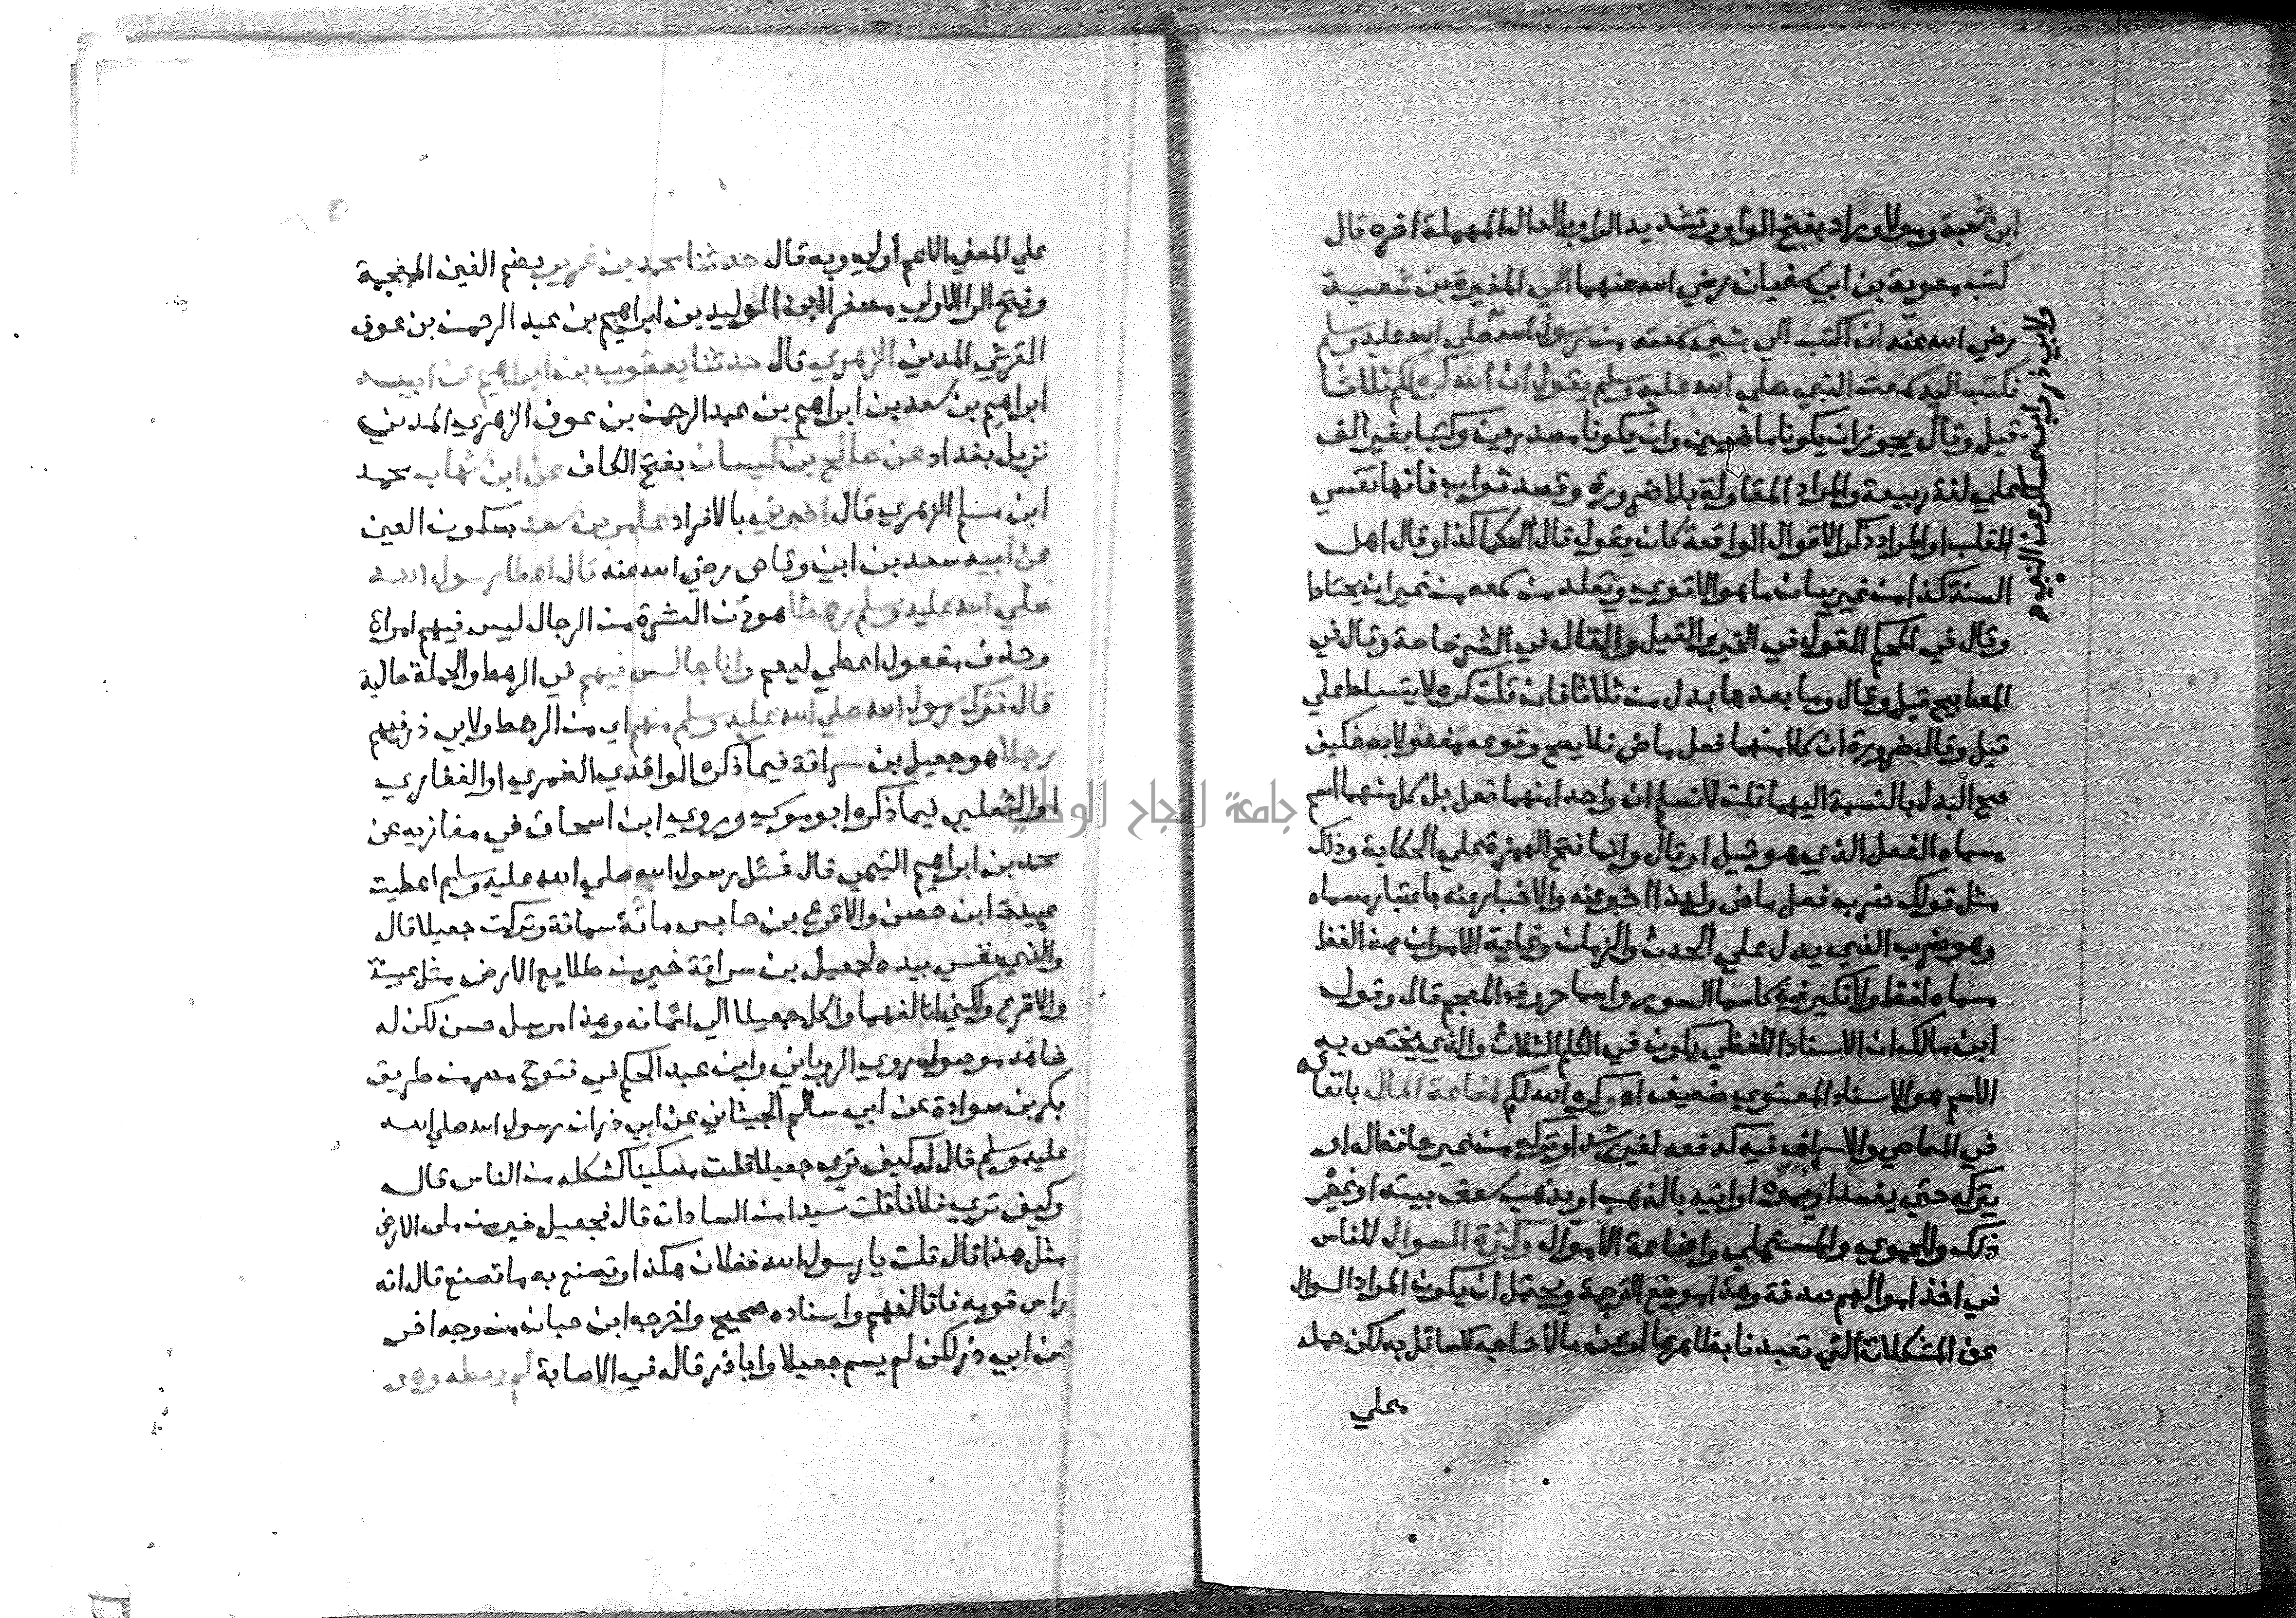 ابن شعبة ومولاه وراد بفتح الواو وتشديد الراء وبالدال المهملة اخره قال
كتب معوية بن ابي سفيان رضي الله عنهما الي المغيرة بن شعبة
رضي الله عنه ان اكتب الي بشيء سمعته من رسول الله صلي الله عليه وسلم
فكتب اليه سمعت النبي صلي الله عليه وسلم يقول ان الله كره لكم ثلاثا
قيل وقال يجوز ان يكونا ماضيين وان يكونا مصدرين وكتبا بغير الف
علي لغة ربيعة والمراد المقاولة بلا ضرورة وقصد ثواب فانها تقسي
القلب او المراد ذكر الاقوال الواقعة كان يقول قال الحكما كذا وقال اهل
السنة كذا من غير بيان ما هو الاقوي وتقلد من سمعه من غير ان يحتاط
وقال في المحكم القول في الخير والقيل والقال في الشر خاصة وقال في
المصابيح قيل وقال وما بعدها بدل من ثلاثا فان قلت كره لا يتسلط علي
قيل وقال ضرورة ان كلا منهما فعل ماض فلا يصح وقوعه مفعولا به فكيف
صح البدل بالنسبة اليهما قلت لا نسلم ان واحدا منهما فعل بل كل منهما اسم
مسماه الفعل الذي هو قيل او قال وانما فتح الهمزة علي الحكاية وذلك
مثل قولك ضرب فعل ماض ولهذا اخبر عنه والاخبار عنه باعتبار مسماه
وهو ضرب الذي يدل علي الحدث والزمان وغاية الامر ان هذا لفظ
مسماه لفظ ولا نكير فيه كاسما السور واسما حروف المعجم قال وقول
ابن مالك ان الاسناد اللفظي يكون في الكلم الثلاث والذي يختص به
الاسم هو الاسناد المعنوي ضعيف اه وكره الله لكم اضاعة المال بانفاقه
في المعاصي والاسراف فيه كدفعه لغير رشيد او تركه من غير حافظ له او
يتركه حتي يفسد او يموه اوانيه بالذهب او يذهب سقف بيته او نحو
ذلك وللحموي والمستملي واضاعة الاموال وكثرة السوال للناس
في اخذ اموالهم صدقة وهذا موضع الترجمة ويحتمل ان يكون المراد السوال
عن المشكلات التي تعبدنا بظاهرها او عن ما لا حاجة للسائل به لكن حمله
علي
ولابي ذر وابن عساكر عن النبي
علي المعني الاعم اولي وبه قال حدثنا محمد بن غرير بضم الغين المعجمة
وفتح الرا الاولي مصغرا ابن الوليد بن ابراهيم بن عبد الرحمن بن عوف
القرشي المدني الزهري قال حدثنا يعقوب بن ابراهيم عن ابيه
ابراهيم بن سعد بن ابراهيم بن عبد الرحمن بن عوف الزهري المدني
نزيل بغداد عن صالح بن كيسان بفتح الكاف عن ابن شهاب محمد
ابن مسلم الزهري قال اخبرني بالافراد عامر بن سعد بسكون العين
عن ابيه سعد بن ابي وقاص رضي الله عنه قال اعطا رسول الله
صلي الله عليه وسلم رهطا هو دون العشرة من الرجال ليس فيهم امراة
وحذف مفعول اعطي ليعم وانا جالس فيهم في الرهط والجملة حالية
قال فترك رسول الله صلي الله عليه وسلم منهم اي من الرهط ولابي ذر فيهم
رجلا هو جعيل بن سراقة فيما ذكره الواقدي الضمري او الغفاري
او الثعلبي فيما ذكره ابو موسي وروي ابن اسحاق في مغازيه عن
محمد بن ابراهيم التيمي قال قيل رسول الله صلي الله عليه وسلم اعطيت
عيينة ابن حصن والاقرع بن حابس مائة مائة وتركت جعيلا قال
والذي نفسي بيده لجعيل بن سراقة خير من طلايع الارض مثل عيينة
والاقرع ولكني اتالفهما واكل جعيلا الي ايمانه وهذا مرسل حسن لكن له
شاهد موصول روي الروياني وابن عبد الحكم في فتوح مصر من طريق
بكر بن سوادة عن ابي سالم الجيشاني عن ابي ذر ان رسول الله صلي الله
عليه وسلم قال له كيف تري جعيلا قلت مسكينا كشكله من الناس قال
وكيف تري فلانا قلت سيدا من السادات قال فجعيل خير من ملء الارض
مثل هذا قال قلت يا رسول الله ففلان هكذا وتصنع به ما تصنع قال انه
راس قومه فاتالفهم واسناده صحيح واخرجه ابن حبان من وجه اخر
عن ابي ذر لكن لم يسم جعيلا وابا ذر قاله في الاصابة لم يعطه وهو
جامعة النجاح الوطنية